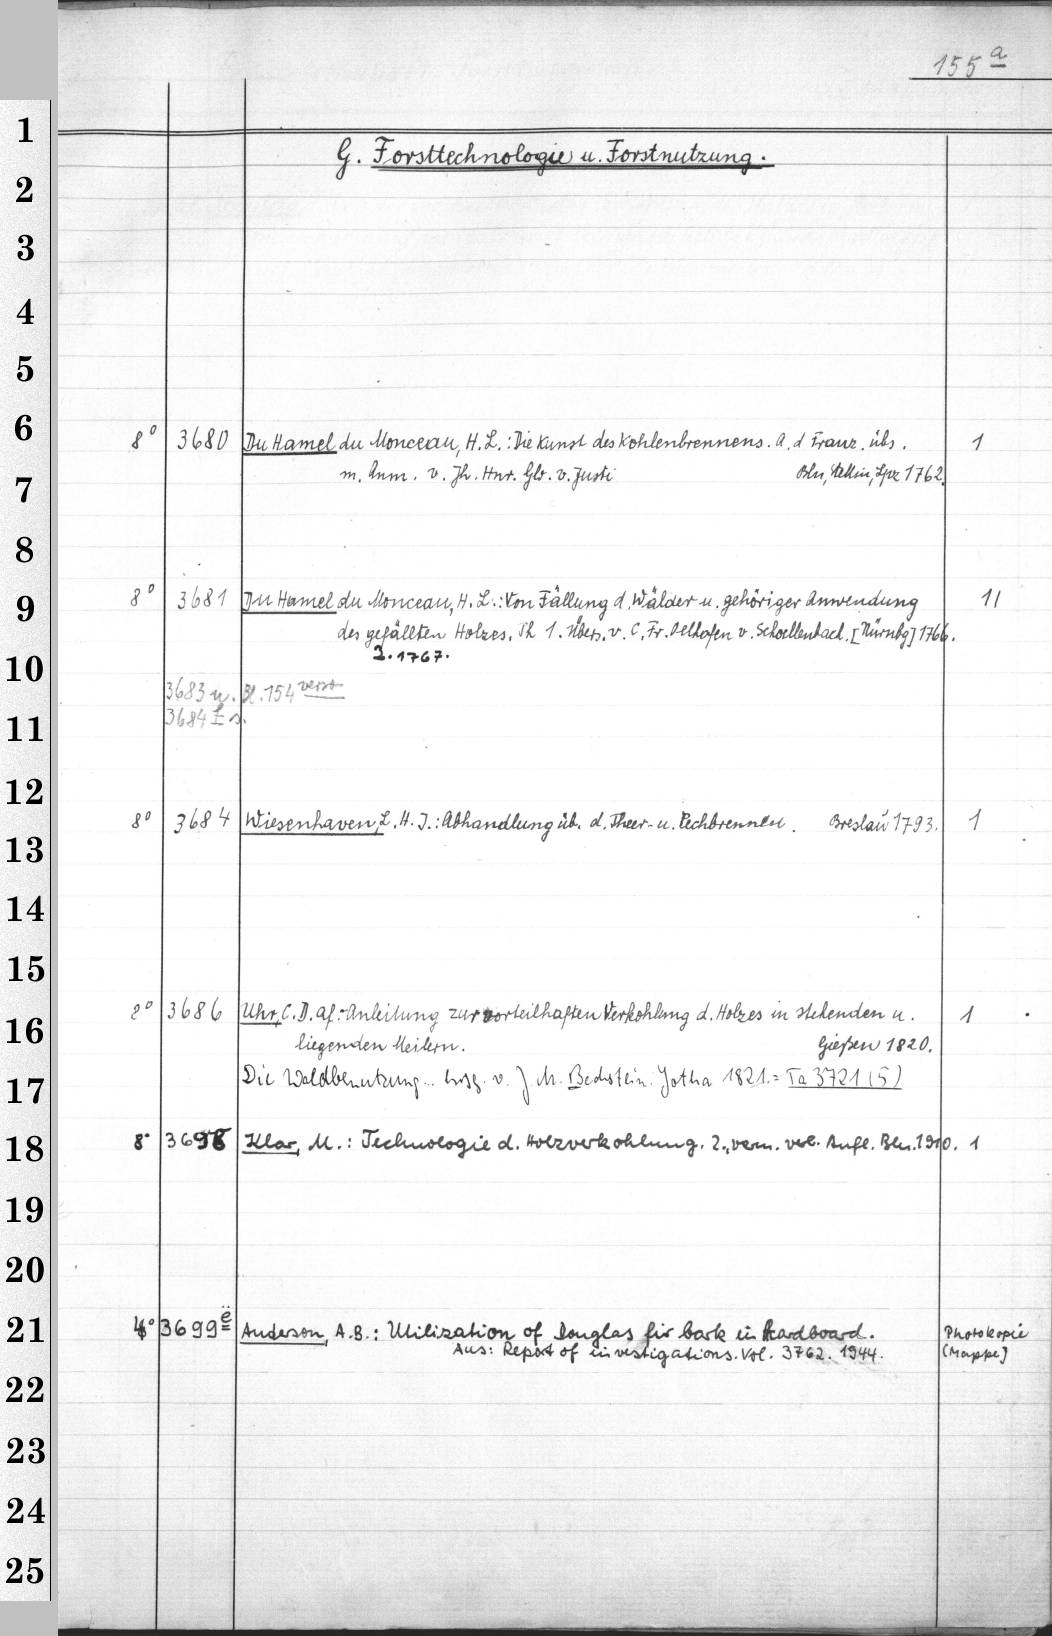 155 a
1
G. Forsttechnologie u. Forstnutzung.
2
3
4
5
6
8° 3680 Du Hamel du Monceau, H. L.: Die Kunst des Kohlenbrennens. A. d Franz. übs. 1
m. Anm. v. Jh. Hnr. Glo. v. Justi Bln, Stettin, Lpz 1762.
7
8
8° 3681 Du Hamel du Monceau, H. L.: Von Fällung d. Wälder u. gehöriger Anwendung 11
9
des gefällten Holzes. Th 1. Übers. v. C. Fr. Oelhafen v. Schoellenbach. [Nürnbg] 1766.
2. 1767.
10
3683 u. Bl. 154 verso
3684 s.
11
12
8° 3684 Wiesenhaven, L. H. J.: Abhandlung üb. d. Theer- u. Pechbrennen. Breslau 1793. 1
13
14
15
8° 3686 Uhr, C. D. af: Anleitung zur vorteilhaften Verkohlung d. Holzes in stehenden u. 1
16
liegenden Meilern. Gießen 1820.
Die Waldbenutzung... hrsg. v. J M. Bechstein. Gotha 1821. = Ta 3721 (5)
17
8° 3698 Klar, M.: Technologie d. Holzverkohlung. 2., verm. verb. Aufl. Bln. 1910. 1
18
19
20
4° 3699 ë Anderson, A. B.: Utilization of Douglas fir bark in hardboard. Photokopie
21
Aus: Report of investigations. Vol. 3762. 1944. (Mappe)
22
23
24
25